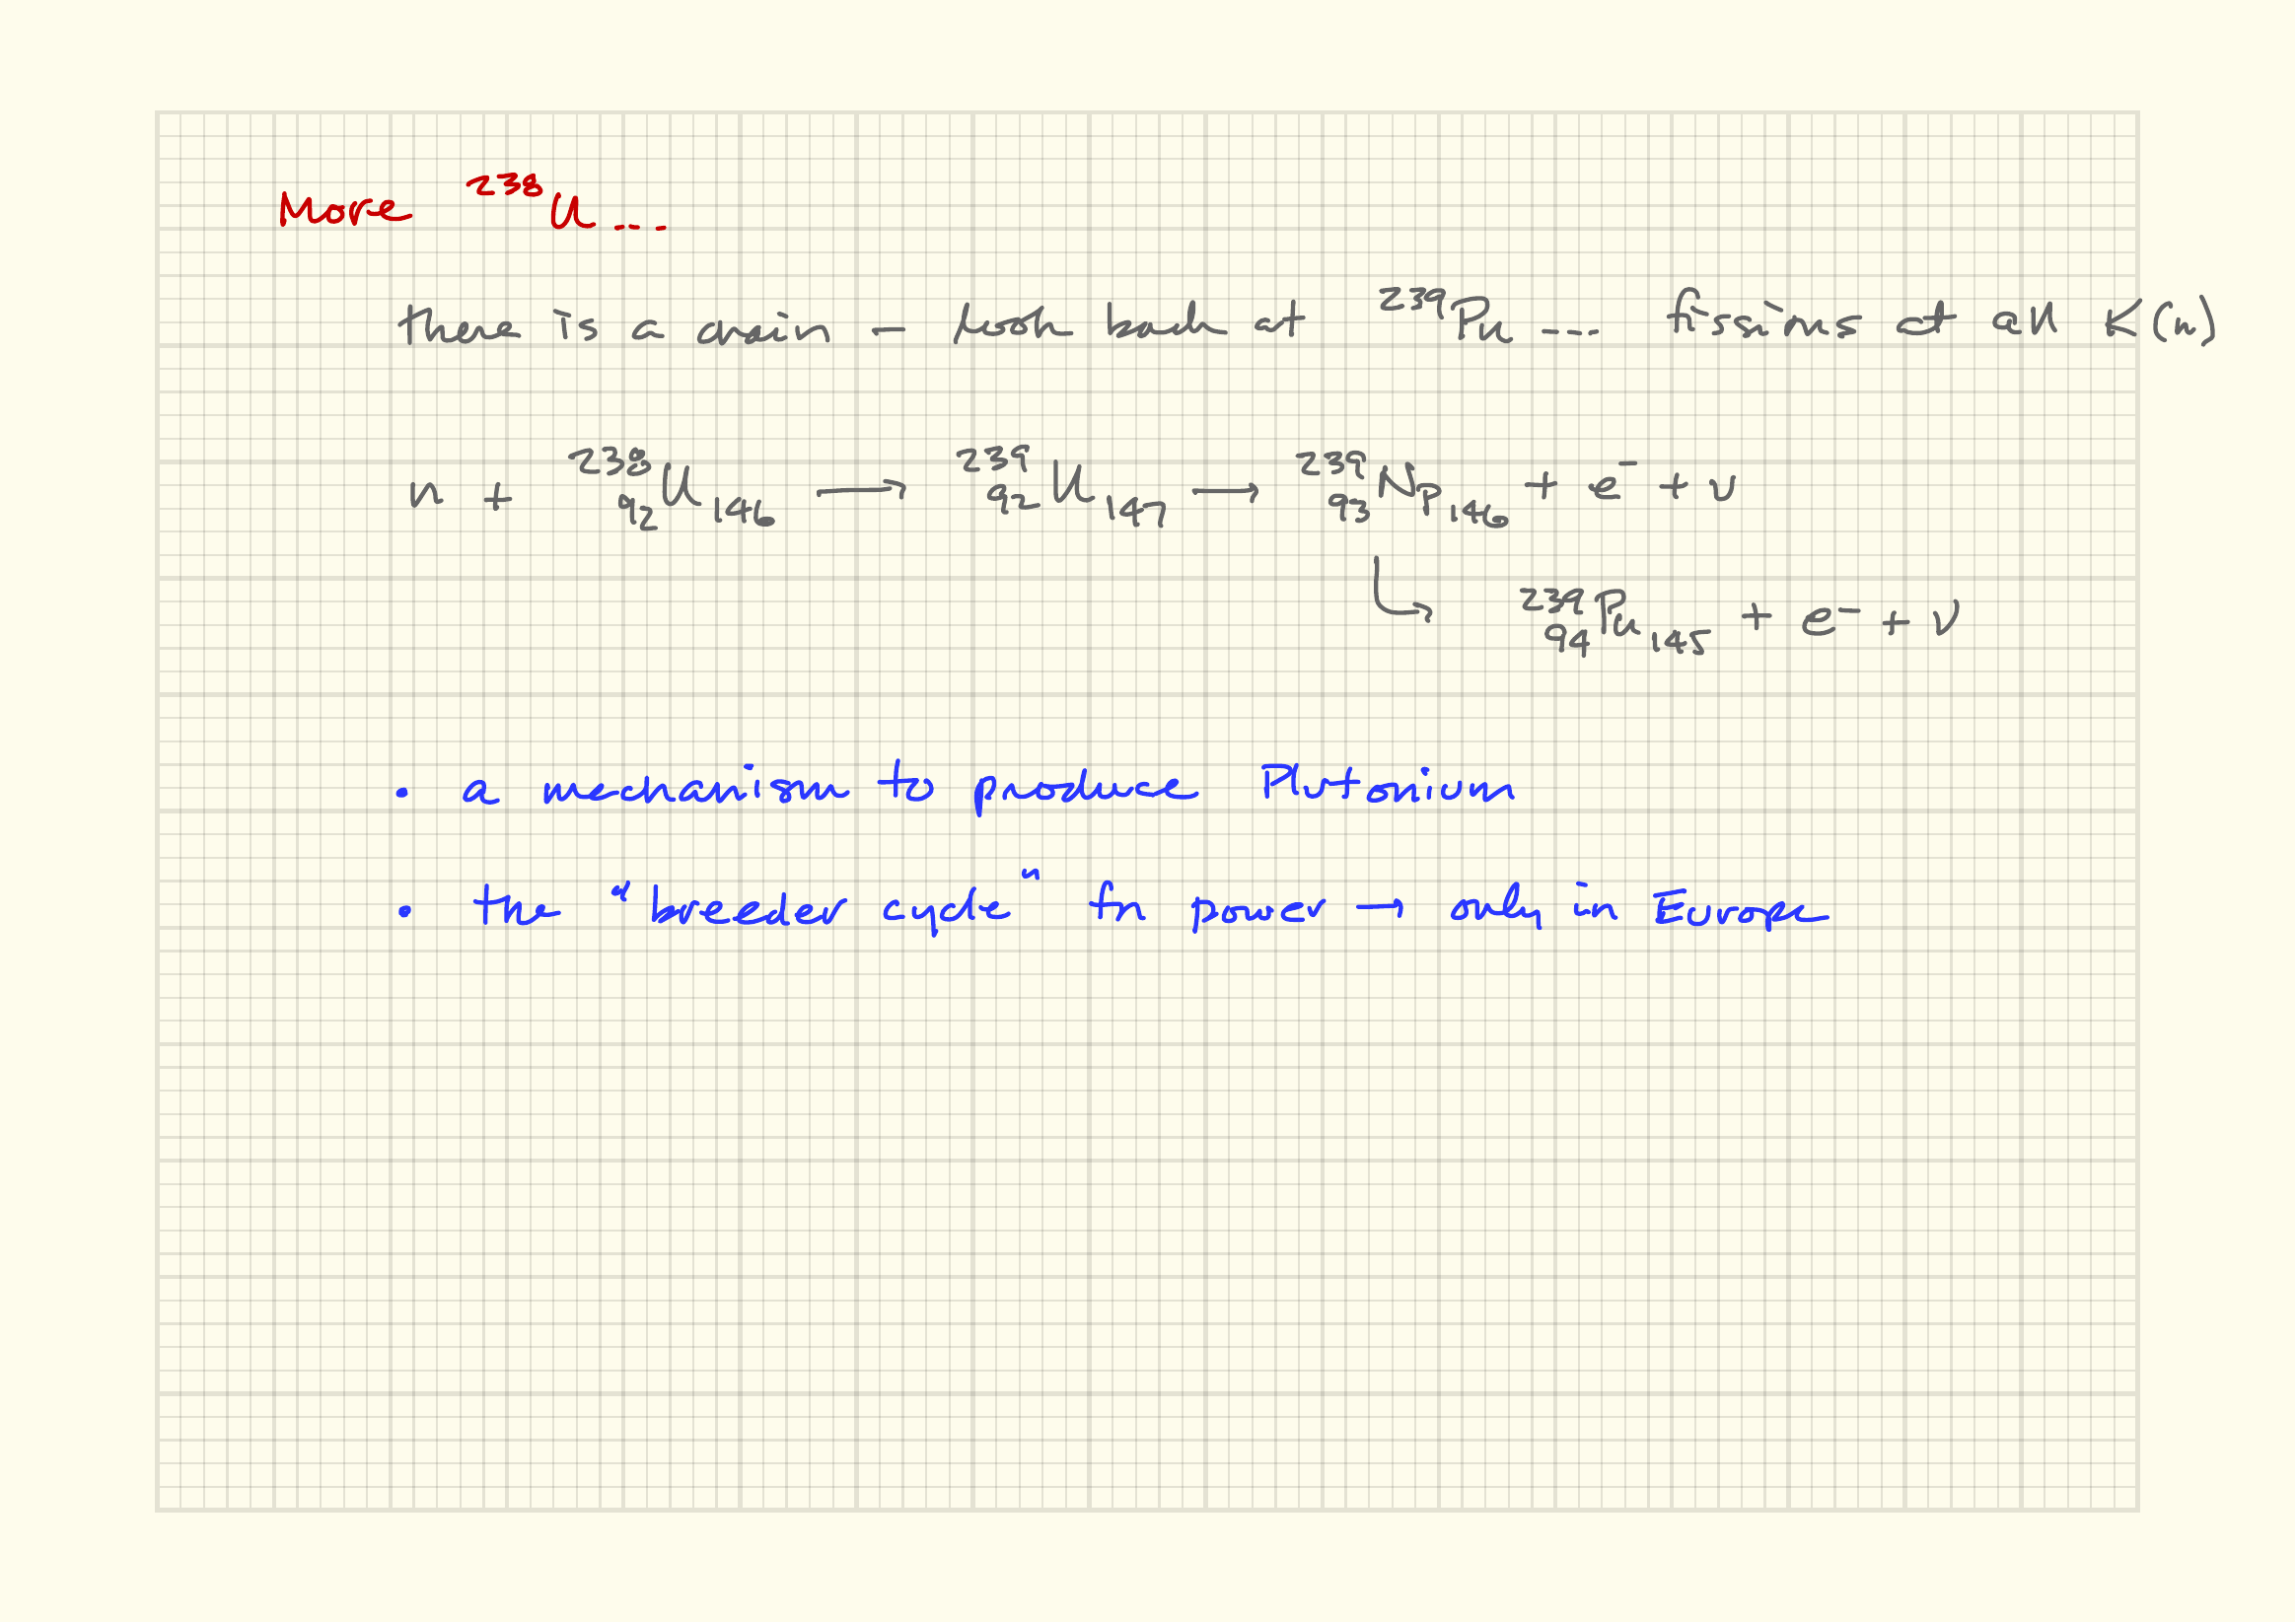 More ²³⁸U ....
there is a chain – look back at ²³⁹Pu .... fissions at all K(n)
n + ²³⁸₉₂U₁₄₆ → ²³⁹₉₂U₁₄₇ → ²³⁹₉₃Np₁₄₆ + e⁻ + ν
↳ ²³⁹₉₄Pu₁₄₅ + e⁻ + ν
• a mechanism to produce Plutonium
• the "breeder cycle" for power → only in Europe